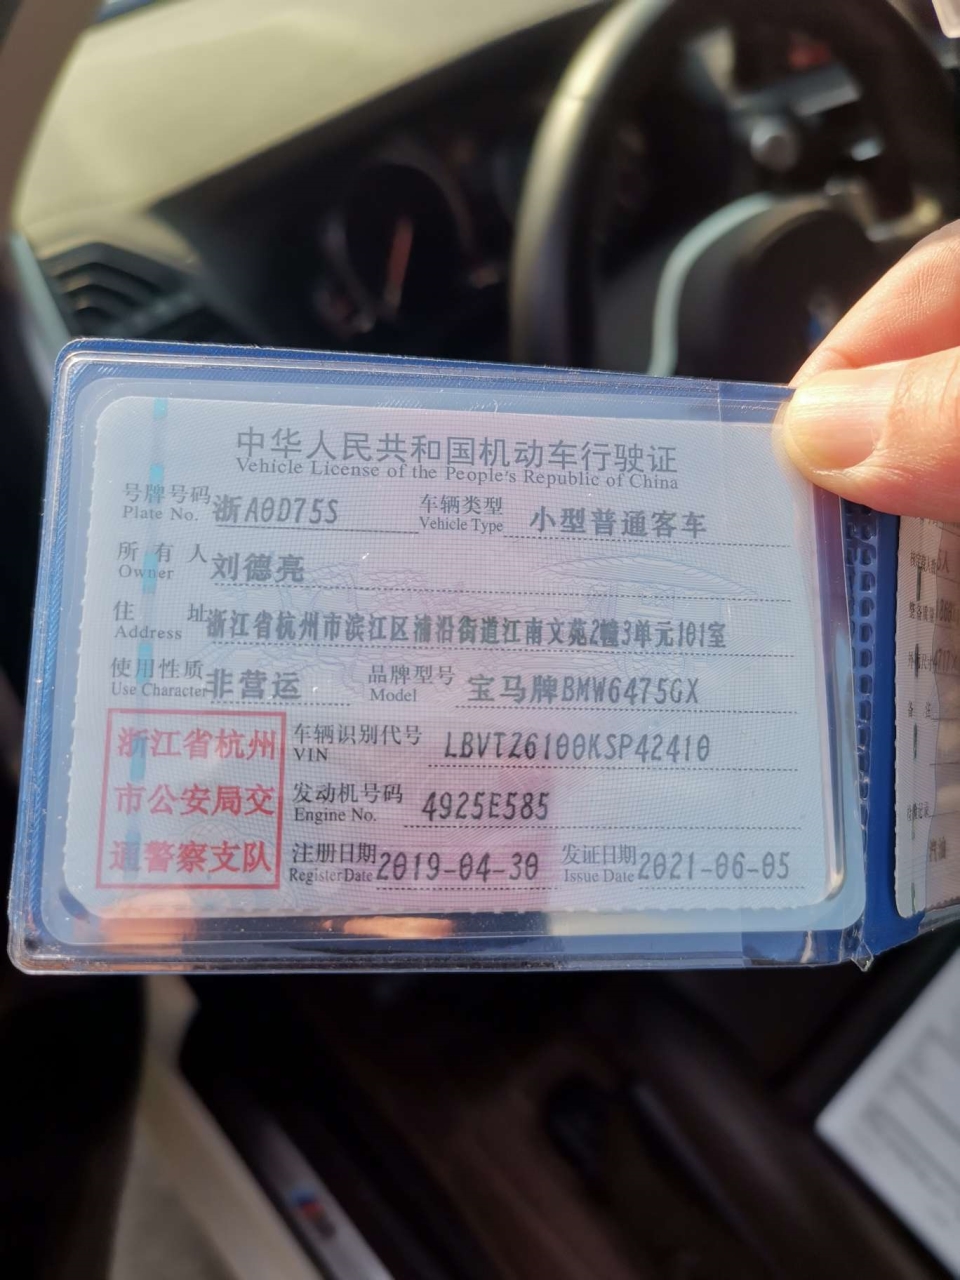 中华人民共和国机动车行驶证
Vehicle License of the People's Republic of China
号牌号码 浙A0D75S 车辆类型 小型普通客车
Plate No. Vehicle Type
所有人 刘德亮
Owner
住址 浙江省杭州市滨江区浦沿街道江南文苑2幢3单元101室
Address
使用性质 非营运 品牌型号 宝马牌BMW6475GX
Use Character Model
浙江省杭州
市公安局交
通警察支队
车辆识别代号 LBVTZ6100KSP42410
VIN
发动机号码 4925E585
Engine No.
注册日期 2019-04-30 发证日期 2021-06-05
Register Date Issue Date